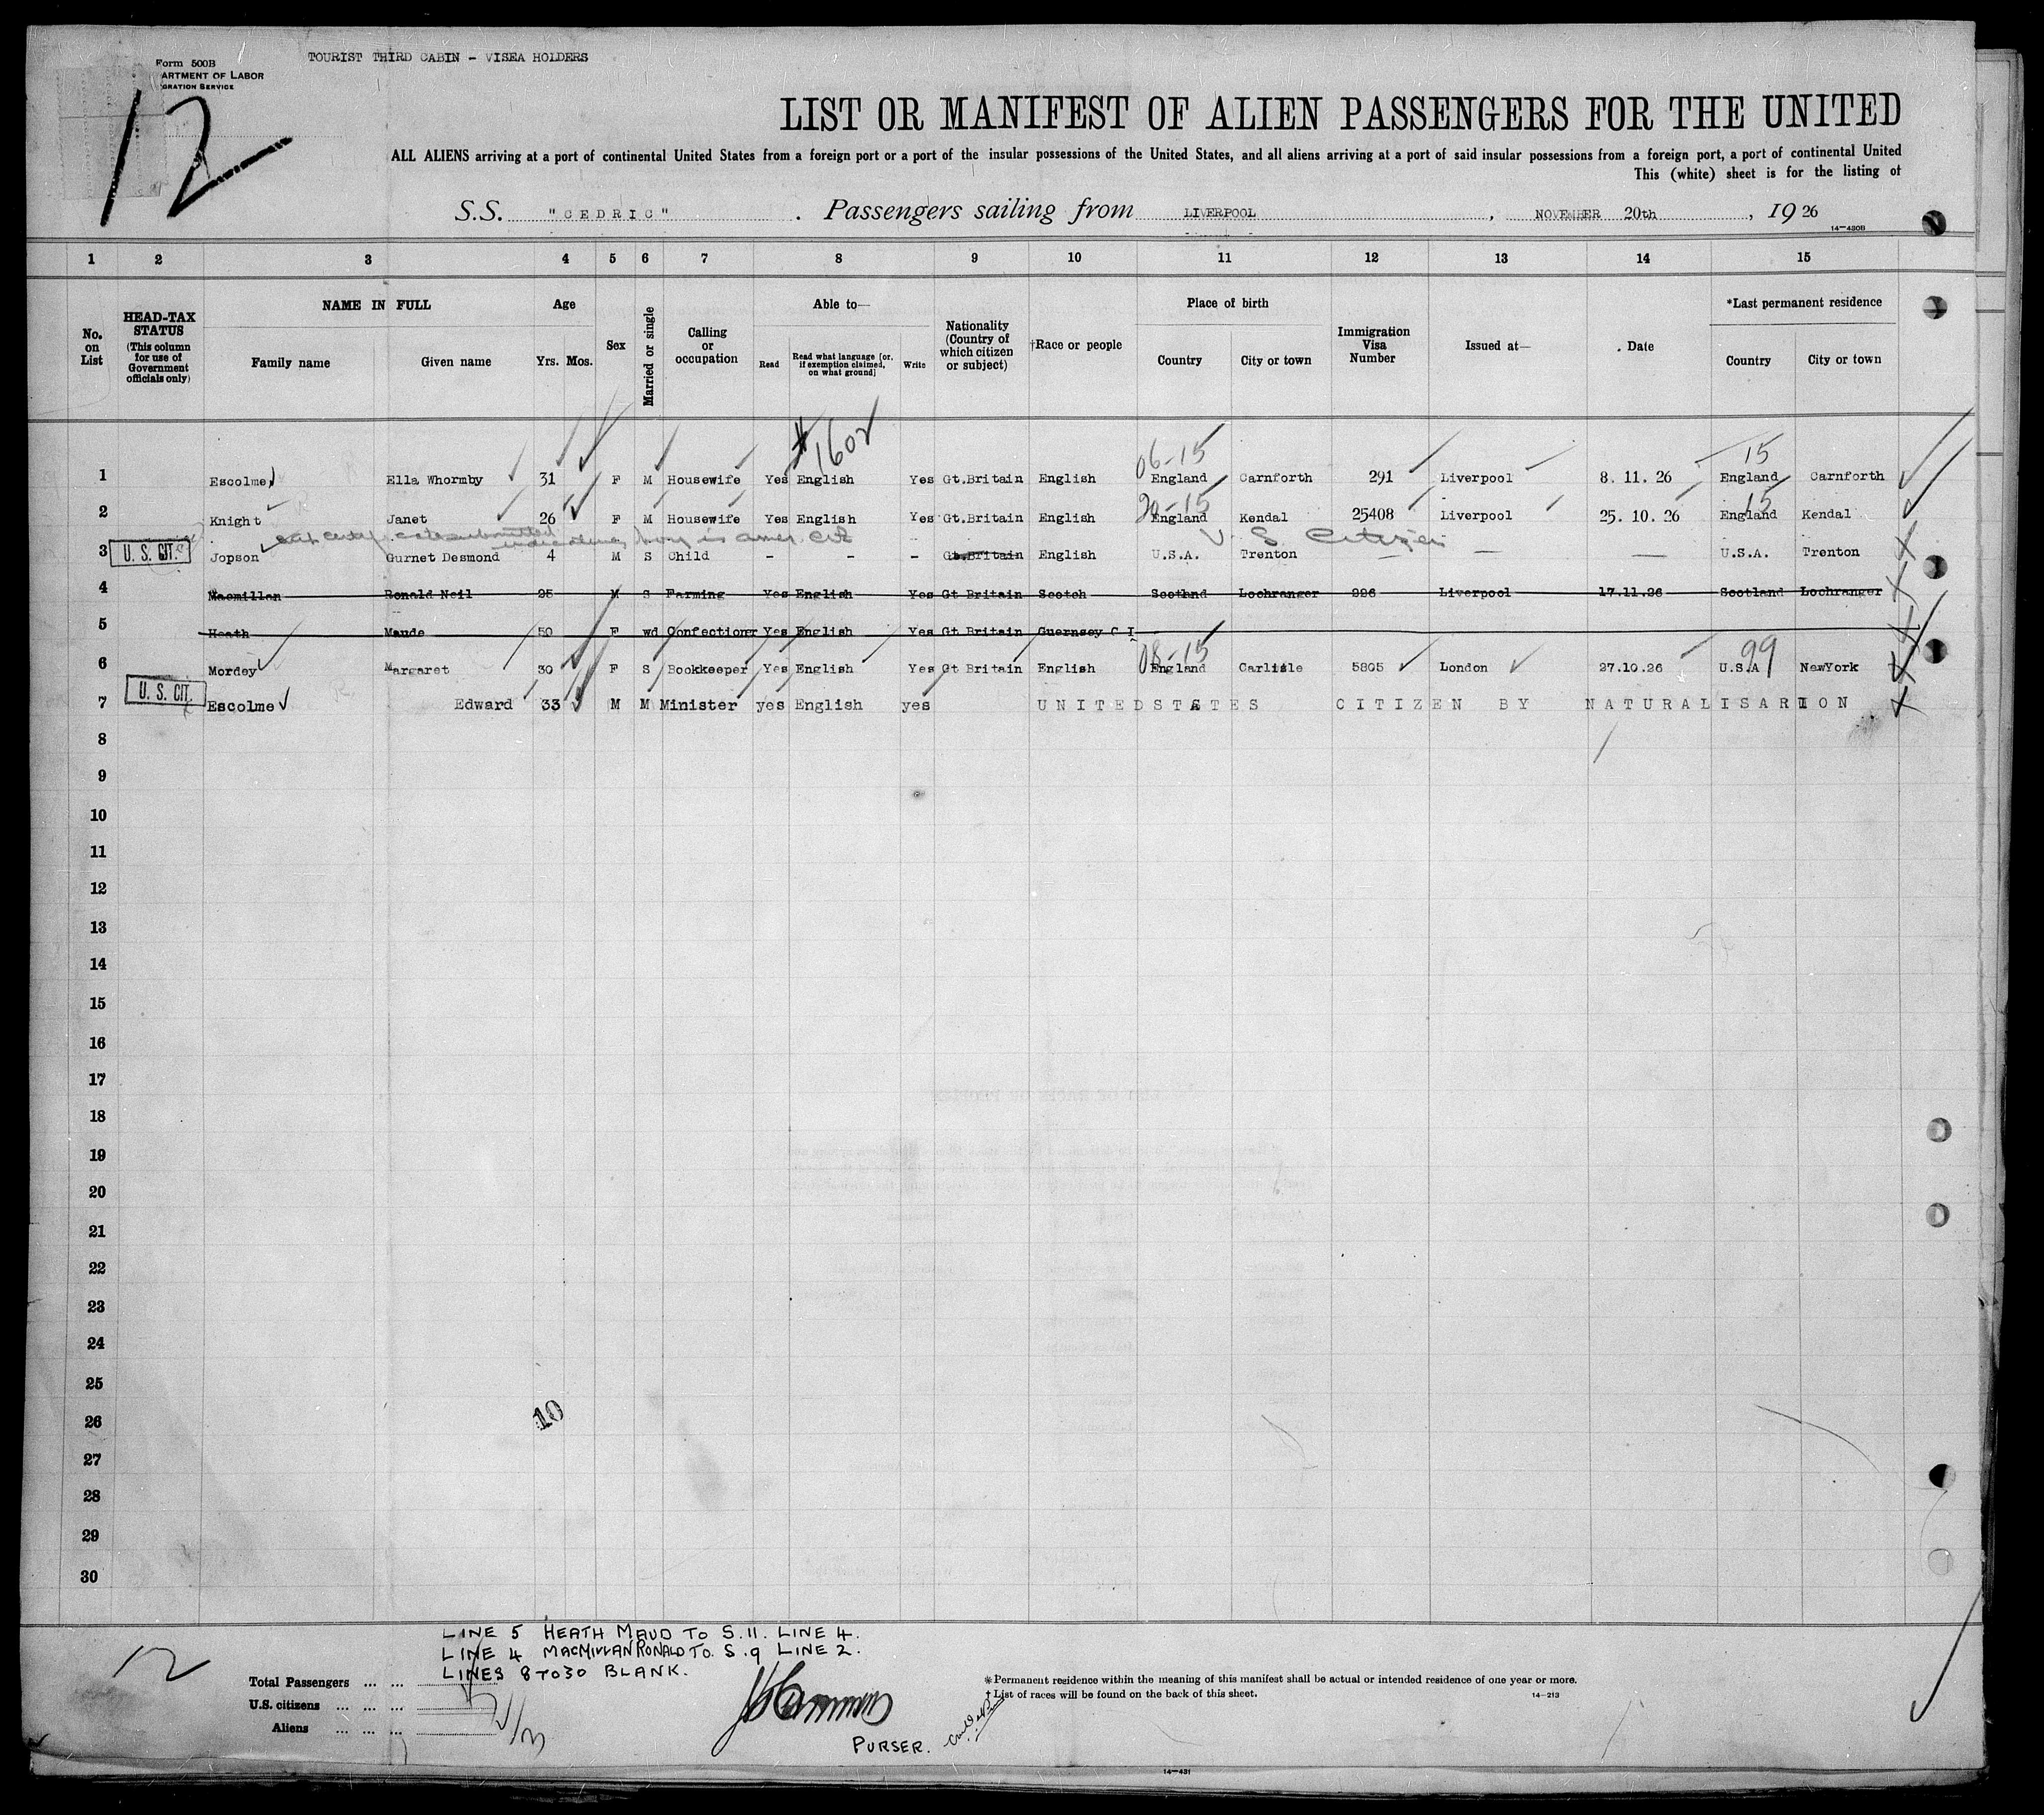 TOURIST THIRD CABIN - VISEA HOLDERS
Form 500B
ARTMENT OF LABOR
GRATION SERVICE
12
LIST OR MANIFEST OF ALIEN PASSENGERS FOR THE UNITED
ALL ALIENS arriving at a port of continental United States from a foreign port or a port of the insular possessions of the United States, and all aliens arriving at a port of said insular possessions from a foreign port, a port of continental United
This (white) sheet is for the listing of
S.S. "CEDRIC". Passengers sailing from LIVERPOOL, NOVEMBER 20th, 1926
14-430B
1 2 3 4 5 6 7 8 9 10 11 12 13 14 15
No. on List
HEAD-TAX STATUS (This column for use of Government officials only)
NAME IN FULL
Family name Given name
Age
Yrs. Mos.
Sex
Married or single
Calling or occupation
Able to—
Read Read what language [or, if exemption claimed, on what ground] Write
Nationality (Country of which citizen or subject)
†Race or people
Place of birth
Country City or town
Immigration Visa Number
Issued at—
Date
*Last permanent residence
Country City or town
#1602
06-15 15
1 Escolme Ella Whormby 31 F M Housewife Yes English Yes Gt.Britain English England Carnforth 291 Liverpool 8. 11. 26 England Carnforth
20-15 15
2 Knight Janet 26 F M Housewife Yes English Yes Gt.Britain English England Kendal 25408 Liverpool 25. 10. 26 England Kendal
submitted boy is amer. cit U. S. Citizen
3 U. S. CIT. Jopson Gurnet Desmond 4 M S Child - - - Gt.Britain English U.S.A. Trenton — — — U.S.A. Trenton
4 Macmillan Ronald Neil 25 M S Farming Yes English Yes Gt Britain Scotch Scotland Lochranger 226 Liverpool 17.11.26 Scotland Lochranger
5 Heath Maude 50 F wd Confectioner Yes English Yes Gt Britain Guernsey C I
08-15 99
6 Mordey Margaret 30 F S Bookkeeper Yes English Yes Gt Britain English England Carlisle 5805 London 27.10.26 U.S.A NewYork
7 U. S. CIT. Escolme Edward 33 M M Minister yes English yes UNITEDSTATES CITIZEN BY NATURALISARION
8
9
10
11
12
13
14
15
16
17
18
19
20
21
22
23
24
25
26
10
27
28
29
30
LINE 5 HEATH MAUD TO S.11. LINE 4.
LINE 4 MACMILLAN RONALD TO. S.9 LINE 2.
LINES 8 TO 30 BLANK.
12
Total Passengers ... ...
U.S. citizens ... ... ... 2
Aliens ... ... ... 3
PURSER.
*Permanent residence within the meaning of this manifest shall be actual or intended residence of one year or more.
†List of races will be found on the back of this sheet.
14-213
14-431